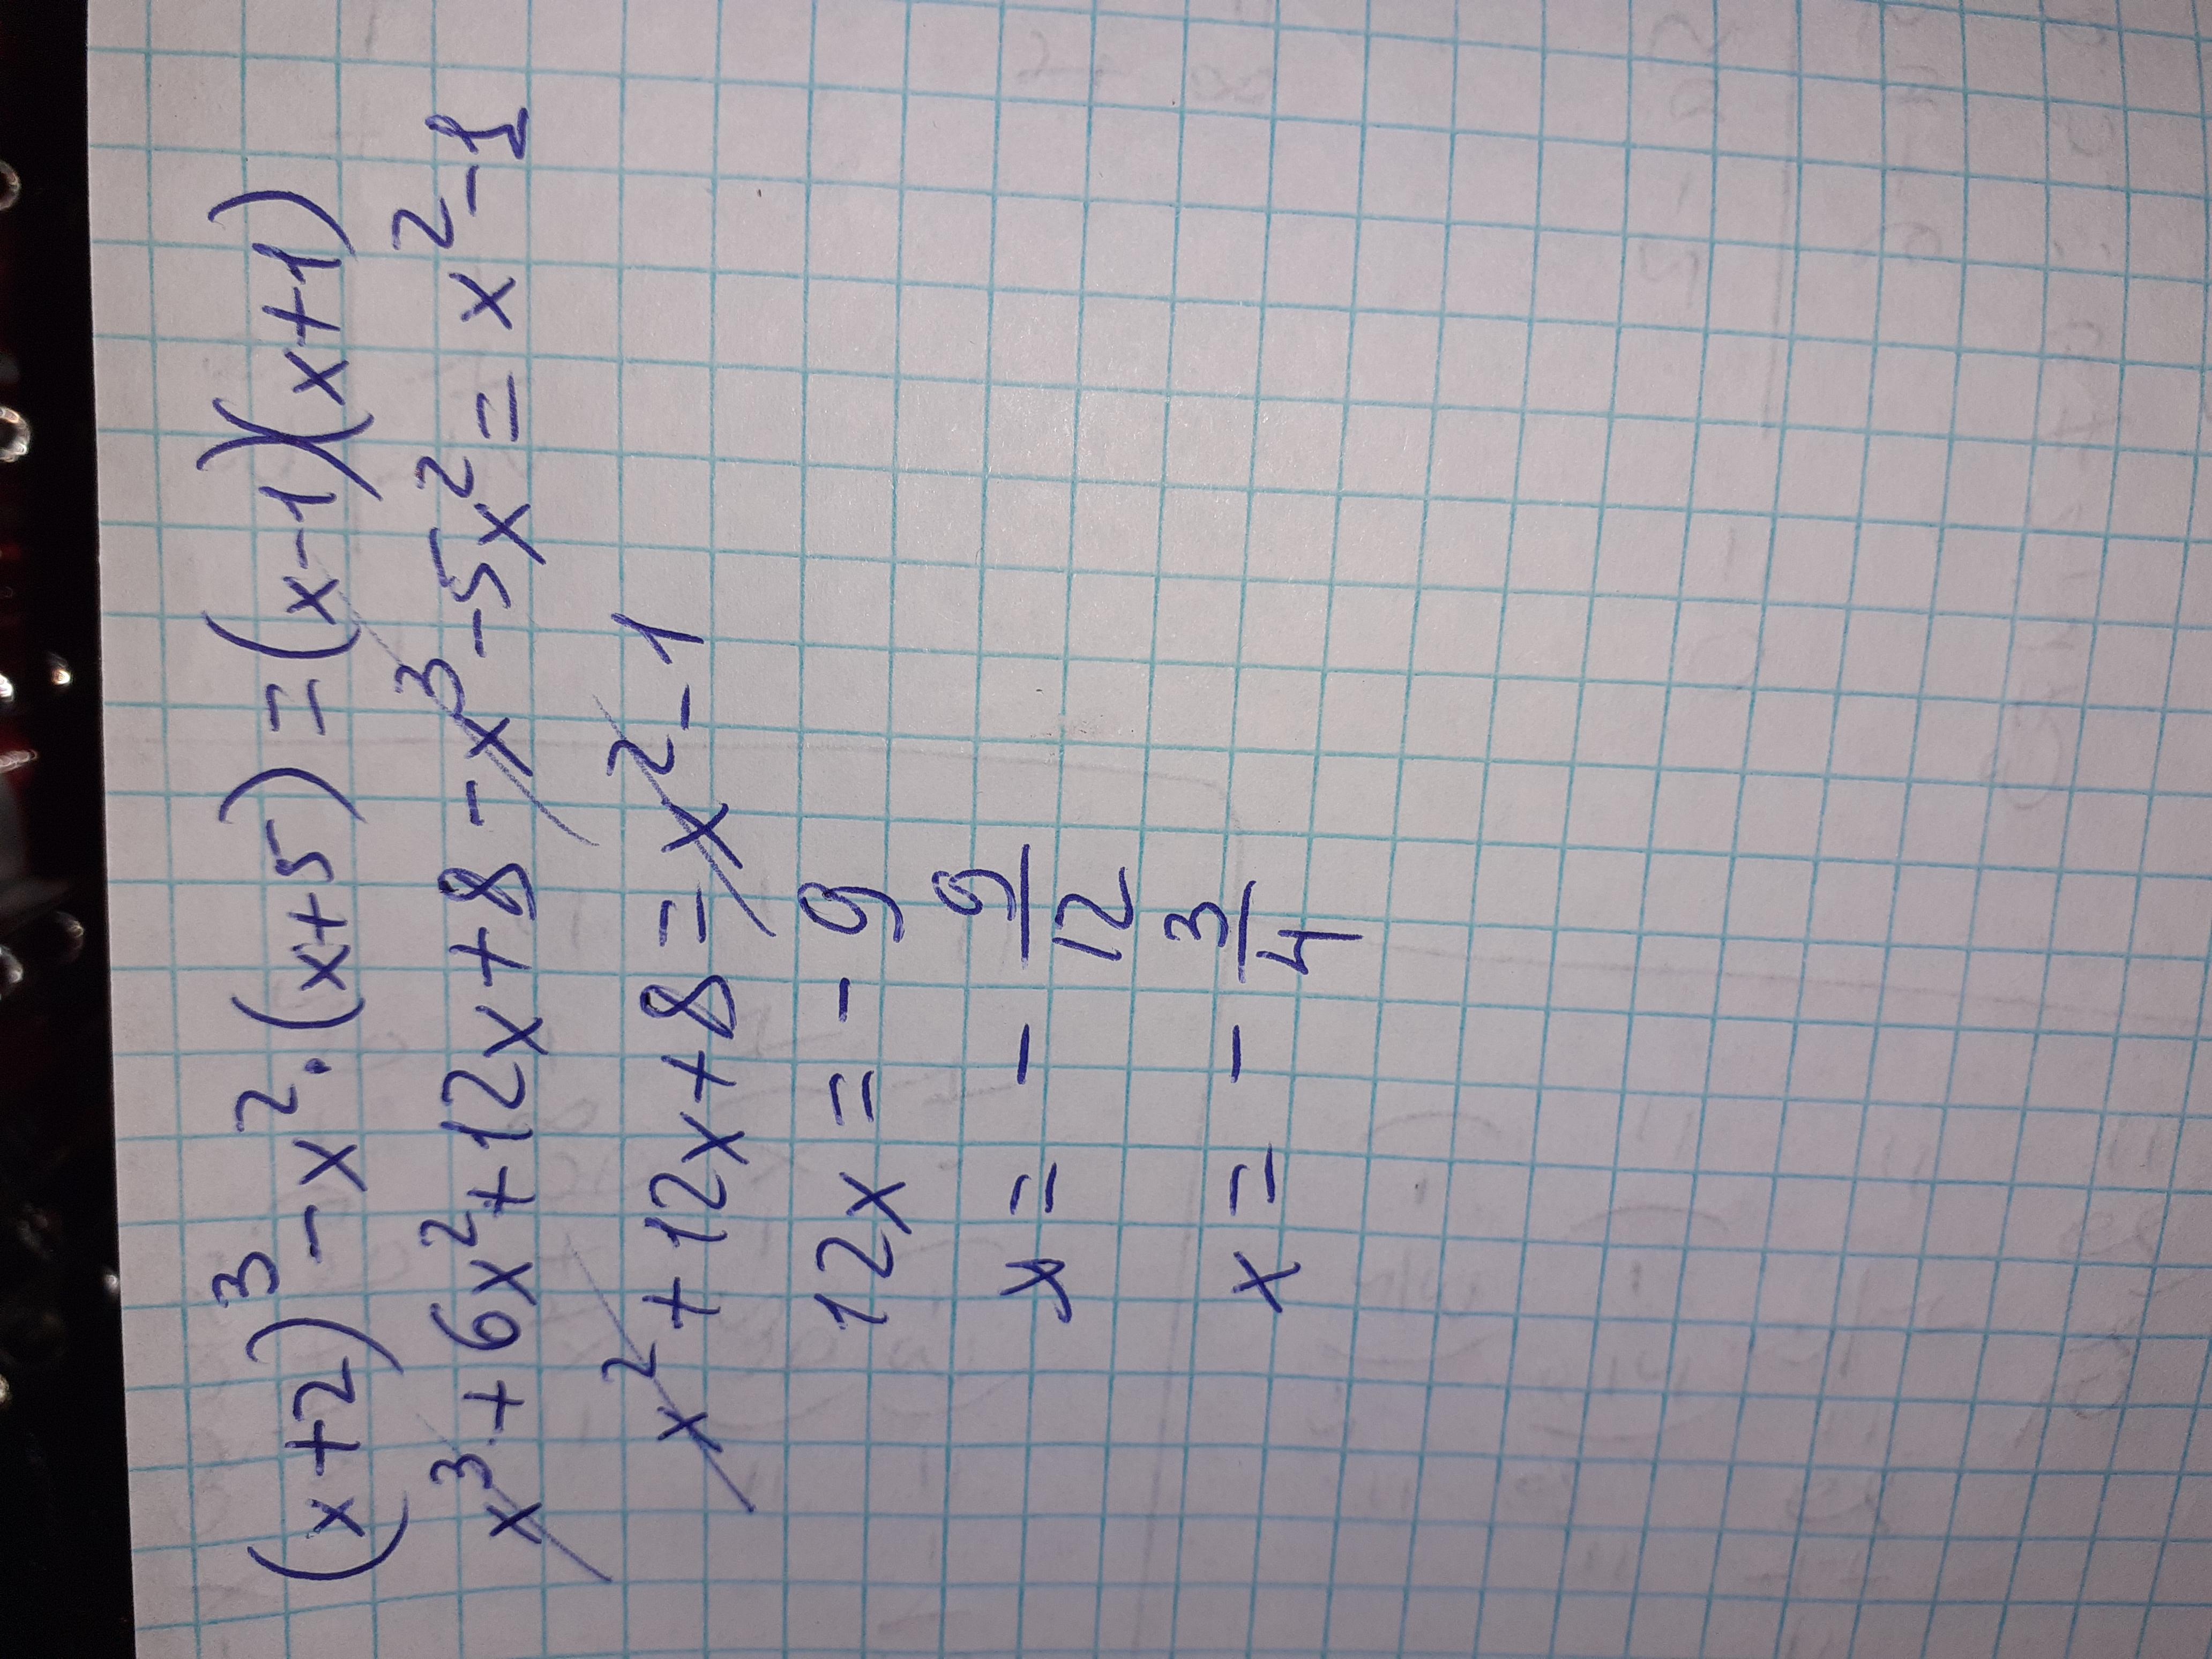 (x+2)³-x²·(x+5)=(x-1)(x+1)
x³+6x²+12x+8-x³-5x²=x²-1
x²+12x+8=x²-1
12x=-9
x=-9/12
x=-3/4